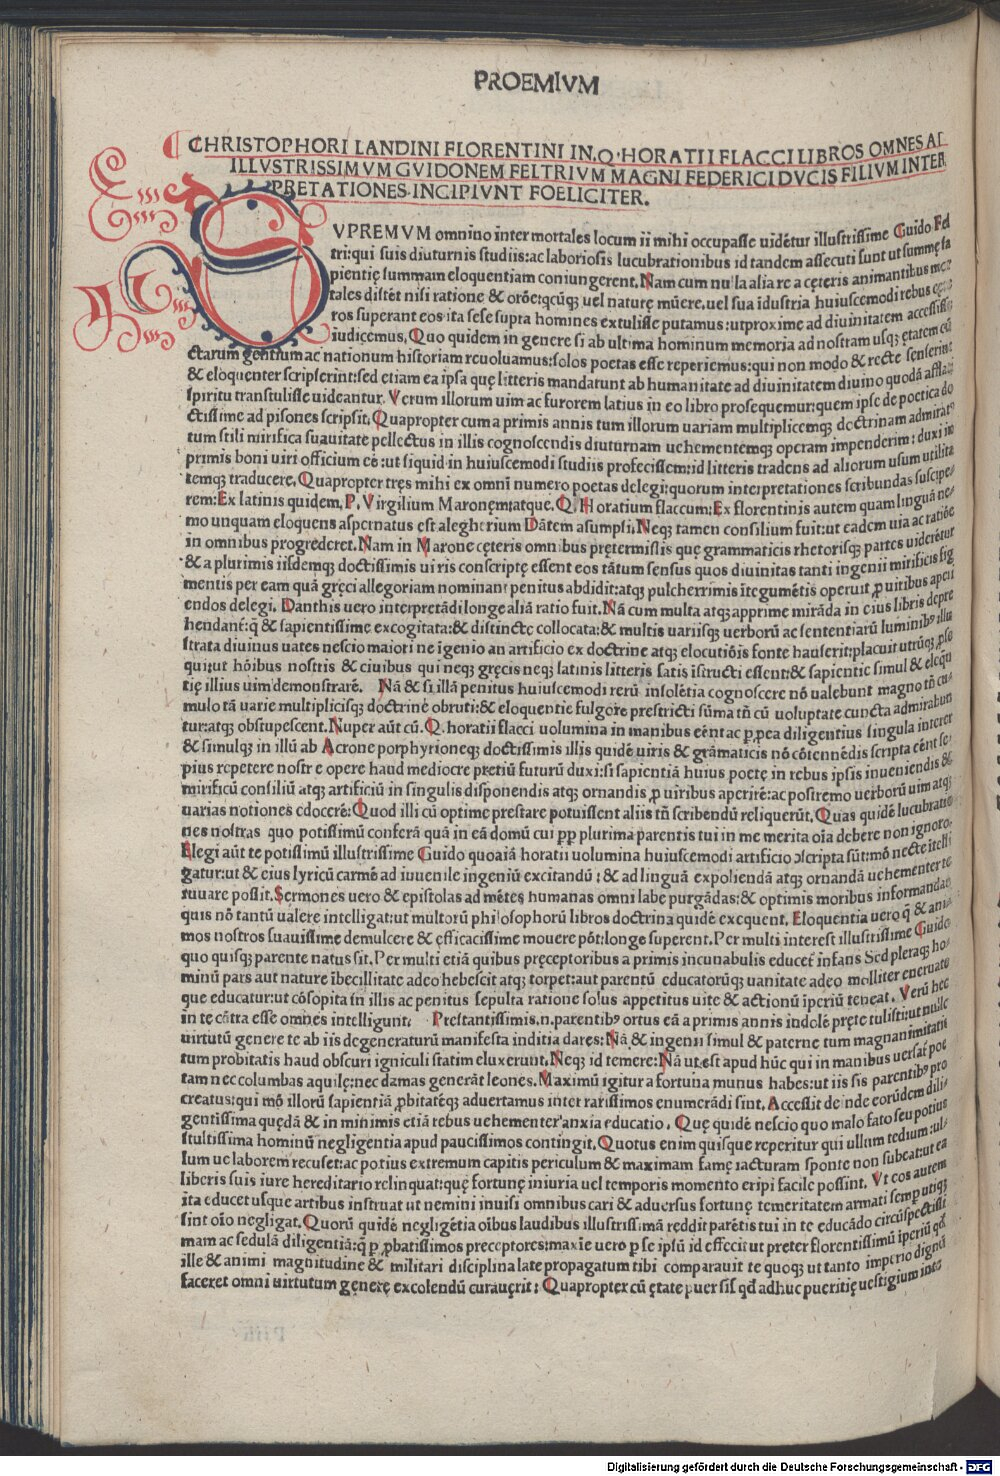 PROEMIVM
CHRISTOPHORI LANDINI FLORENTINI IN.Q.HORATII FLACCI LIBROS OMNES AD
ILLVSTRISSIMVM GVIDONEM FELTRIVM MAGNI FEDERICI DVCIS FILIVM INTER
PRETATIONES INCIPIVNT FOELICITER.
SVPREMVM omnino inter mortales locum ii mihi occupasse uidẽtur illustrissime Guido Fel
tri:qui suis diuturnis studiis:ac laboriosis lucubrationibus id tandem assecuti sunt ut summę sa
pientię summam eloquentiam coniungerent.Nam cum nulla alia re a cęteris animantibus mor
tales distẽt nisi ratione & orõe:qcũqꝫ uel naturę mũere.uel sua ĩdustria huiuscemodi rebus
ros superant eos ita sese supra homines extulisse putamus:ut proxime ad diuinitatem accessisse
iudicemus,Quo quidem in genere si ab ultima hominum memoria ad nostram usqꝫ ętatem
ctarum gentium ac nationum historiam reuoluamus:solos poetas esse reperiemus:qui non modo & recte senserint
& eloquenter scripserint:sed etiam ea ipsa quę litteris mandarunt ab humanitate ad diuinitatem diuino quodã afflatu
spiritu transtulisse uideantur.Verum illorum uim ac furorem latius in eo libro prosequemur:quem ipse de poetica do
ctissime ad pisones scripsit.Quapropter cum a primis annis tum illorum uariam multiplicemqꝫ doctrinam admiratꝰ
tum stili mirifica suauitate pellectus in illis cognoscendis diuturnam uehementemqꝫ operam impenderim:duxi in
primis boni uiri officium eẽ:ut siquid in huiuscemodi studiis profecissem:id litteris tradens ad aliorum usum utilita
temqꝫ traducere.Quapropter tręs mihi ex omni numero poetas delegi:quorum interpretationes scribundas suscipe
rem:Ex latinis quidem.P.Virgilium Maronęm:atque.Q.Horatium flaccum:Ex florentinis autem quam linguã ne
mo unquam eloquens aspernatus est alegherium Dãtem asumpsi.Neqꝫ tamen consilium fuit:ut eadem uia ac ratiõe
in omnibus progrederet.Nam in Marone cęteris omnibus prętermissis quę grammaticis rhetorisqꝫ partes uiderẽtur
& a plurimis iisdemqꝫ doctissimis uiris conscriptę essent eos tãtum sensus quos diuinitas tanti ingenii mirificis fig
mentis per eam quã gręci allegoriam nominant penitus abdidit:atqꝫ pulcherrimis ĩtegumẽtis operuit ꝑ uiribus aperi
endos delegi.Danthis uero interpretãdi longe aliã ratio fuit.Nã cum multa atqꝫ apprime mirãda in eius libris depre
hendant:q̃ & sapientissime excogitata:& distincte collocata:& multis uariisqꝫ uerborũ ac sententiarũ luminibꝰ illu
strata diuinus uates nescio maiori ne igenio an artificio ex doctrine atqꝫ elocutiõis fonte hauserit:placuit utrũqꝫ
quirut hõibus nostris & ciuibus qui neqꝫ gręcis neqꝫ latinis litteris satis ĩstructi essent:& sapientie simul & eloquẽ
tię illius uim demonstrarẽ. Nã & si illã penitus huiuscemodi rerũ insolẽtia cognoscere nõ ualebunt magno tñ cu
mulo tã uarie multiplicisqꝫ doctrinę obruti:& eloquentie fulgore prestricti sũma tñ cũ uoluptate cuncta admirabun
tur:atqꝫ obstupescent.Nuper aũt cũ.Q.horatii flacci uolumina in manibus eẽnt ac ꝓpea diligentius singula interer
& simulqꝫ in illũ ab Acrone porphyrioneqꝫ doctissimis illis quidẽ uiris & grãmaticis nõ cõtennẽdis scripta eẽnt se
pius repetere nostre opere haud mediocre pretiũ futurũ duxi:si sapientiã huius poetę in rebus ipsis inueniendis &
mirificũ consiliũ atqꝫ artificiũ in singulis disponendis atqꝫ ornandis ꝓ uiribus aperirẽ:ac postremo uerborũ uim atqꝫ
uarias notiones edocerẽ:Quod illi cũ optime prestare potuissent aliis tñ scribendũ reliquerũt.Quas quidẽ lucubratio
nes nostras quo potissimũ conferã quã in eã domũ cui ꝓp plurima parentis tui in me merita oĩa debere non ignoro.
Elegi aũt te potissimũ illustrissime Guido quoniã horatii uolumina huiuscemodi artificio ɔscripta sũt:mõ necte ĩtelli
gatur:ut & eius lyricũ carmẽ ad iuuenile ingeniũ excitandũ:& ad linguã expoliendã atqꝫ ornandã uehementer te
iuuare possit.Sermones uero & epistolas ad mẽtes humanas omni labe purgãdas:& optimis moribus informandas
quis nõ tantũ ualere intelligat:ut multorũ philosophorũ libros doctrina quidẽ exequent.Eloquentia uero q̃ & ani
mos nostros suauissime demulcere & efficacissime mouere põt:longe superent.Per multi interest illustrissime Guido
quo quisqꝫ parente natus sit.Per multi etiã quibus pręceptoribus a primis incunabulis educet infans Sed pleraqꝫ ho
minũ pars aut nature ĩbecillitate adeo hebescit atqꝫ torpet:aut parentũ educatorũqꝫ uanitate adeo molliter eneruate
que educatur:ut cõsopita ĩn illis ac penitus sepulta ratione solus appetitus uite & actionũ ĩperiũ teneat.Verũ hec
in te cõtra esse omnes intelligunt. Prestantissimis.n.parentibꝰ ortus eã a primis annis indolẽ pręte tulisti:ut nulle
uirtutũ genere te ab iis degeneraturũ manifesta inditia dares:Nã & ingenii simul & paterne tum magnanimitatis
tum probitatis haud obscuri igniculi statim eluxerunt.Neqꝫ id temere:Nã ut est apud hũc qui in manibus uersat poe
tam nec columbas aquilę:nec damas generãt leones.Maximũ igitur a fortuna munus habes:ut iis sis parentibꝰ pro
creatus:qui mõ illorũ sapientiã ꝓbitatẽqꝫ aduertamus inter rarissimos enumerãdi sint.Accessit deinde eorũdem dili
gentissima quędã & in minimis etiã rebus uehementer anxia educatio.Quę quidẽ nescio quo malo fato seu potius
stultissima hominũ negligentia apud paucissimos contingit.Quotus enim quisque reperitur qui ullum tedium:ul
lum ue laborem recuset:ac potius extremum capitis periculum & maximam famę iacturam sponte non subeat:ut ea
liberis suis iure hereditario relinquat:quę fortunę iniuria uel temporis momento eripi facile possint.Vt eos autem
ita educet usque artibus instruat ut nemini inuisi omnibus cari & aduersus fortunę temeritatem armati semꝑ utiqꝫ
sint oĩo negligat.Quorũ quidẽ negligẽtia oĩbus laudibus illustrissimã reddit parẽtis tui in te educãdo circũspectissi
mam ac sedulã diligentiã:q̃ ꝑ ꝓbatissimos preceptores:maxĩe uero ꝑ se ipsũ id effecit ut preter florentissimũ iperiũ qd
ille & animi magnitudine & militari disciplina late propagatum tibi comparauit te quoqꝫ ut tanto imperio dignũ
faceret omni uirtutum genere excolendũ curauęrit:Quapropter cũ ętate puer sis qd adhuc pueritię uestigium
Digitalisierung gefördert durch die Deutsche Forschungsgemeinschaft - DFG